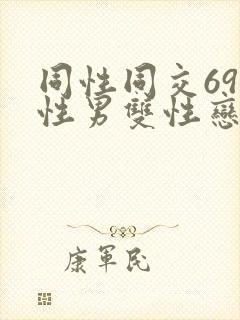 同性同交69
性男雙性戀
康軍民